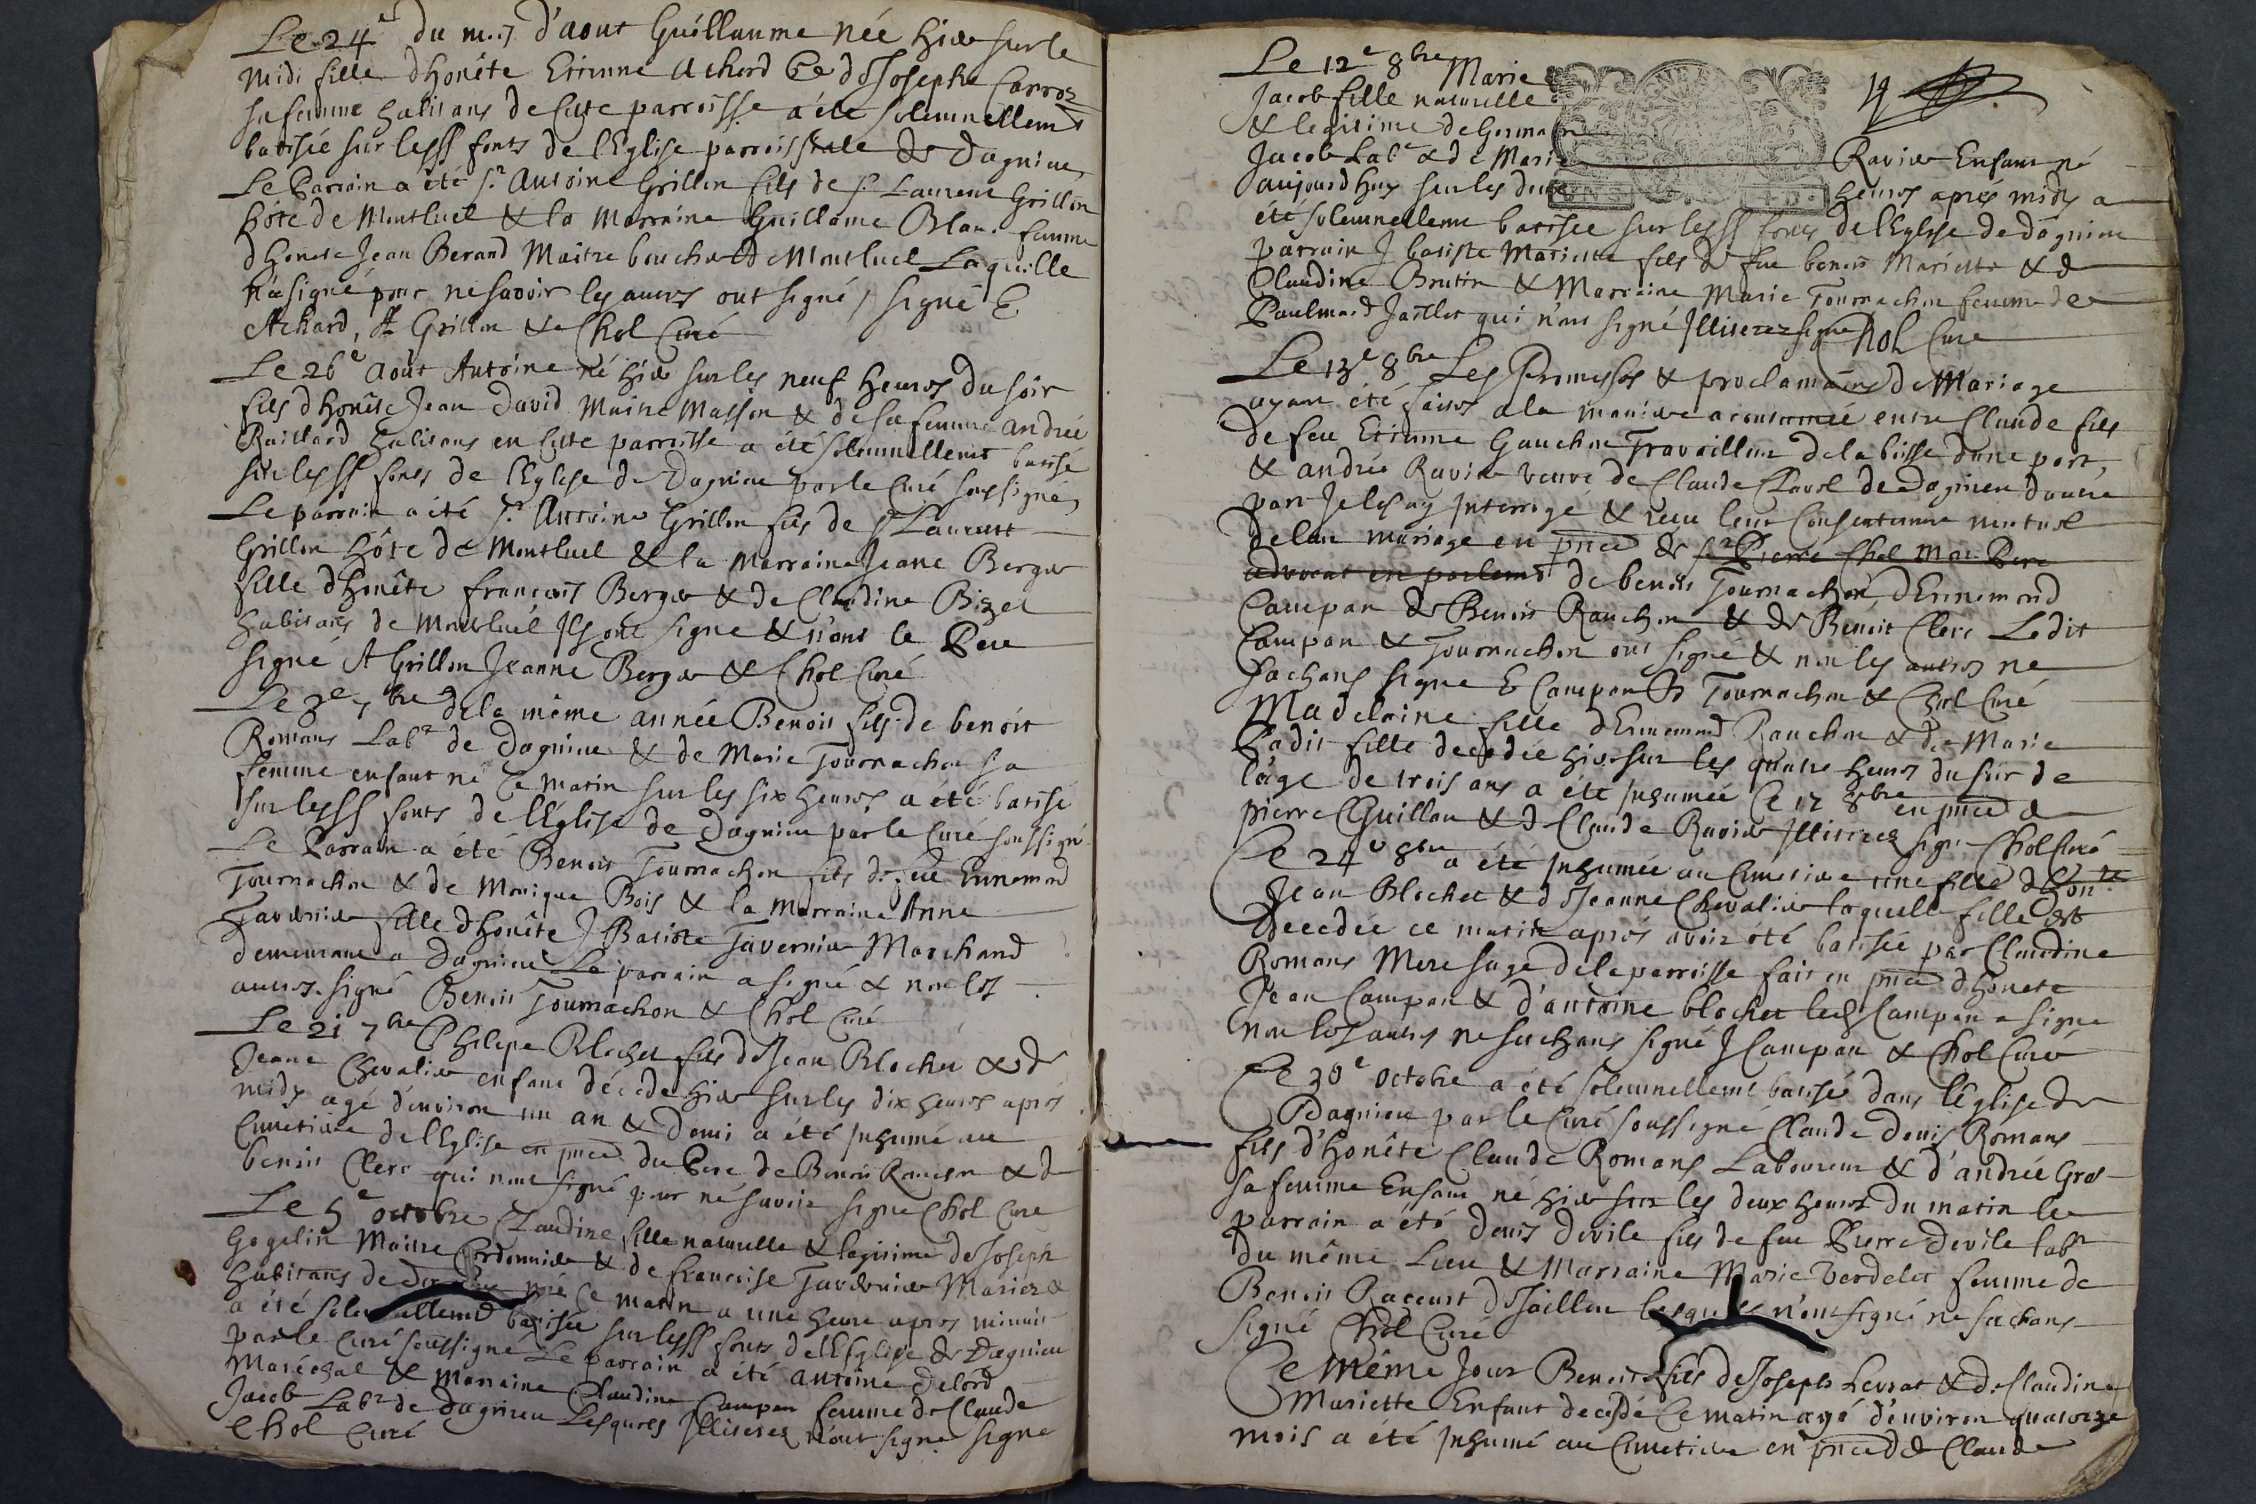 Le 24e du mois d'aout Guillaume née hier sur le
midi fille dhonête Etienne Achard & de Josephe Carroz
sa femme habitans de cette parroisse a été solemnellemt
batisée sur les SS fonts de l'Eglise parroissiale de Dagnieu
Le Parrain a été Sr Antoine Grillon fils de Sr Laurent Grillon
hôte de Montluel & la Marraine Guillame Blanc femme
dhonete Jean Berand Maitre boucher de Montluel Laquelle
n'a signé pour ne savoir les autres ont signé, signé E
Achard, A Grillon & Chol Curé
Le 26e Août Antoine né hier sur les neuf heures du soir
fils dhonête Jean David Maitre Masson & de sa femme andrée
Raillard habitans en cette parroisse a été solemnellemt batisé
sur les SS fonts de l'Eglise de Dagnieu par le Curé soussigné,
Le parrain a été Sr Antoine Grillon fils de Sr Laurent
Grillon hôte de Montluel & la Marraine Jeane Berger
fille dhonête françois Berger & de Claudine Bizet
habitans de Montluel Ils ont signé & n'ont le Pere
signé A Grillon Jeanne Berger & Chol Curé
Le 3e 7bre de la même année Benoit fils de benoit
Romans Labr de Dagnieu & de Marie Tournachon sa
femme enfant né ce matin sur les six heures a été batisé
sur les SS fonts de l'Eglise de Dagnieu par le Curé soussigné
Le Parrain a été Benoit Tournachon fils de feu Ennemond
Tournachon & de Monique Bois & la Marraine Anne
Tavernier fille dhonête J Batiste Tavernier Marchand
demeurant a Dagnieu Le parrain a signé & non les
autres. signé Benoit Tournachon & Chol Curé
Le 21 7bre Philipe Blochet fils de Jean Blochet & de
Jeane Chevalier enfant décédé hier sur les dix heures après
midy agé d'environ un an & demi a été inhumé au
Cimetière de l'Eglise en pnce du Pere de Benoit Rauchon & de
benoit Clerc qui n'ont signé pour ne savoir signé Chol Cure
Le 5e octobre Claudine fille naturelle & legitime de Joseph
Gogelin Maitre Cordonnier & de françoise Tavernier Mariez &
habitans de Dagnieu née ce matin a une heure apres minuit
a été solemnellemt batisée sur les SS fonts de l'Eglise de Dagnieu
par le curé soussigné Le parrain a été Antoine Delord
Maréchal & Marraine Claudine Campan femme de Claude
Jacob Labr de Dagnieu Lesquels Illiterez n'ont signé signé
Chol Curé
19
Le 12e 8bre Marie
Jacob fille naturelle
& legitime de Germain
Jacob Labr & de Marie Ravier Enfant né
aujourdhuy sur les deux heures après midy a
été solemnellemt batisée sur les SS fonts de l'Eglise de Dagnieu
parrain J batiste Mariette fils de feu benoit Mariette & de
Claudine Brutin & Marraine Marie Tournachon femme de
Jaillet qui n'ont signé Illiterez signé Chol Cure
Le 13e 8bre Les Promesses & proclamations de Mariage
ayant été faites a la maniere accoutumée entre Claude fils
de feu Etienne Gauchon Travailleur de la boisse dune part,
& andrée Ravier veuve de Claude Clavel de Dagnieu dautre
part Je les ay interrogé & receu leur consentement mutuel
delou mariage en pnce de Sr Pierre Chol Mon Pere
advocat en parlemt de benoit Tournachon, dEnnemond
Campan de Benoit Rauchon & de Benoit Clerc Ledit
Campan & Tournachon ont signé & non les autres ne
sachans signé E Campan B Tournachon & Chol Curé
Madelaine fille dEnnemond Rauchon & de Marie
Ladit fille decedée hier sur les quatre heures du soir de
lâge de trois ans a été inhumée ce 17 8bre en pnce de
pierre Guillon & d Claude Ravier Illitrez signé Chol Curé
Ce 24e 8bre a été inhumée au Cimetiere une fille dhonte
Jean Blochet & de Jeanne Chevalier laquelle fille est
decedée ce matin après avoir été batisée par Claudine
Romans Mere sage de la parroisse fait en pnce dhonete
Jean Campan & d'antoine blochet led Campan a signé
non les autres ne sachans signé J Campan & Chol Curé
Ce 30e octobre a été solemnellemt batisé dans l'Eglise de
Dagnieu par le Curé soussigné Claude denis Romans
fils d'honête Claude Romans Laboureur & d'andrée Gros
sa femme Enfant né hier sur les deux heures du matin le
parrain a été denis devile fils de feu Pierre devile labr
du même Lieu & Marraine Marie Verdelet femme de
Benoit Racourt de Jaillon lesquels n'ont signé ne sachans
signé Chol Curé
Ce Même Jour Benoit fils de Joseph Levrat & de Claudine
Mariette Enfant decedé ce matin agé d'environ quatorze
mois a été inhumé au Cimetiere en pnce de Claude